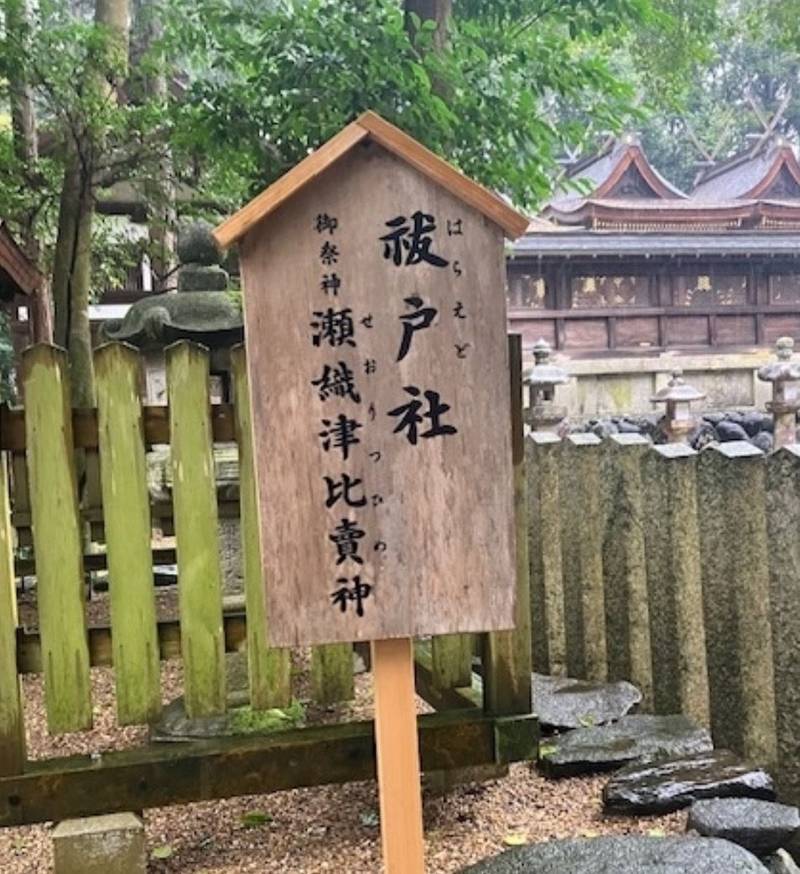 祓戸社
はらえど
御祭神
瀬織津比賣神
せおりつひめ